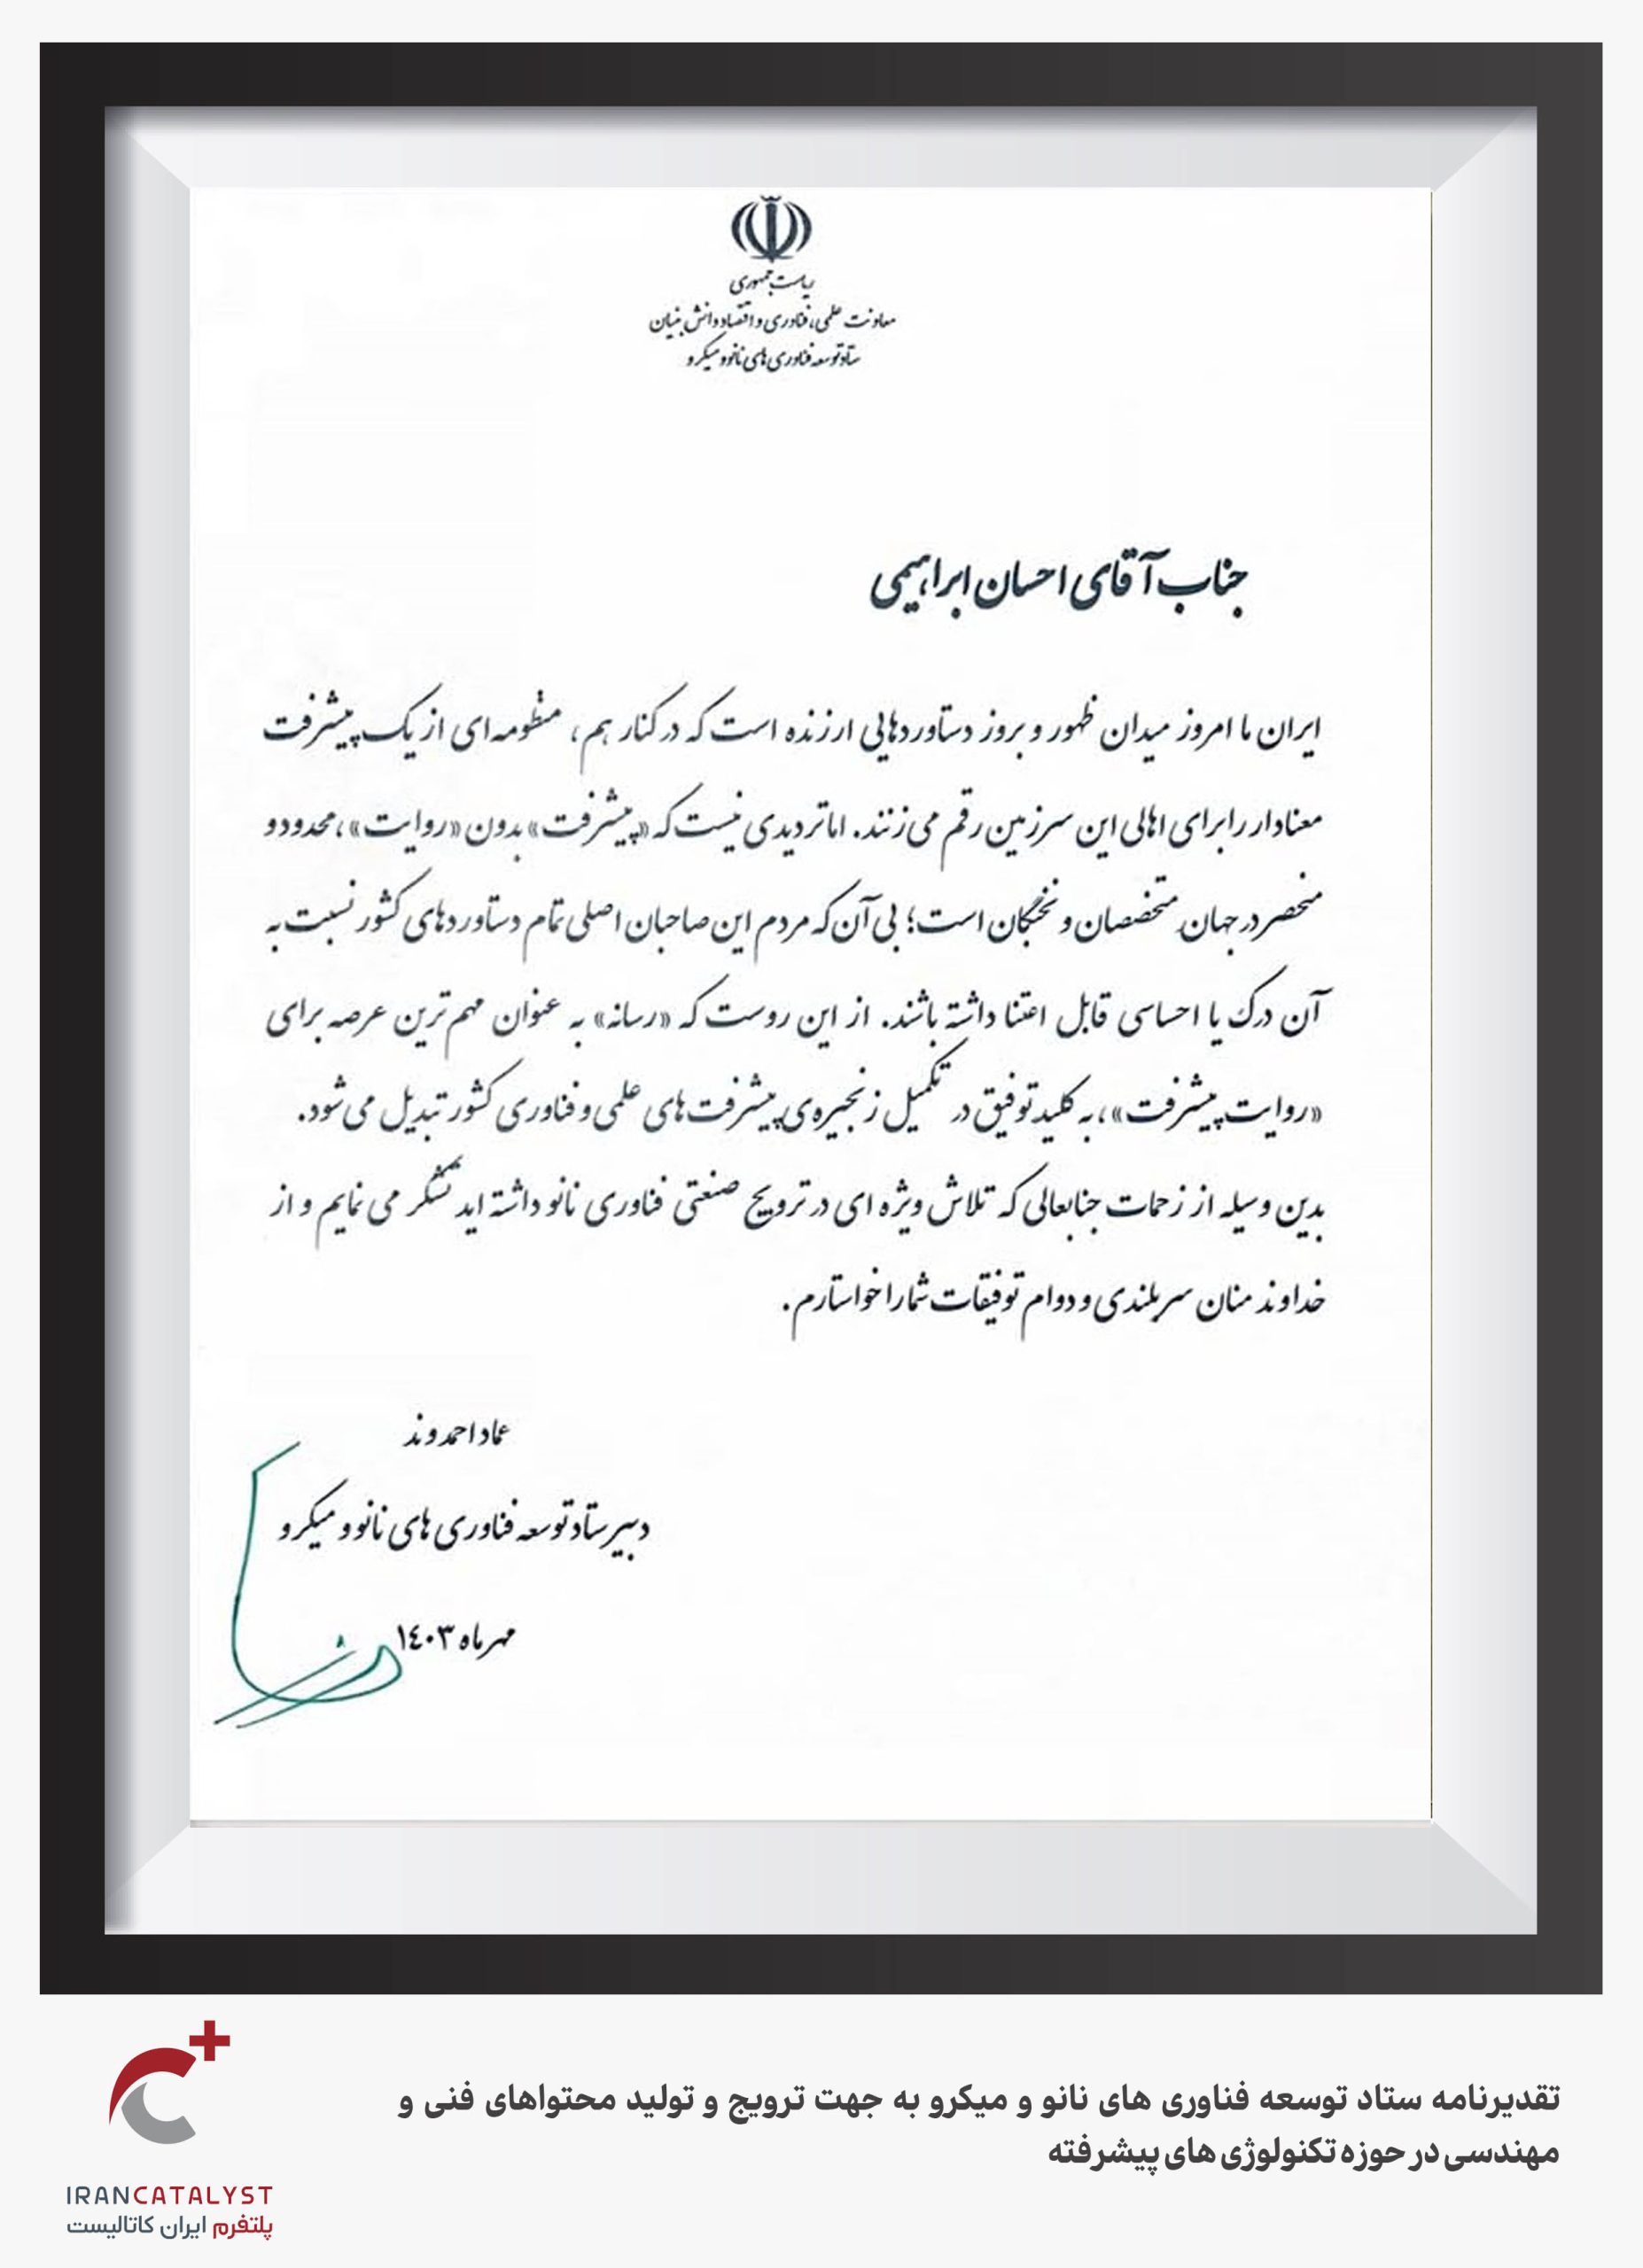 ریاست جمهوری
معاونت علمی، فناوری و اقتصاد دانش بنیان
ستاد توسعه فناوری های نانو و میکرو
جناب آقای احسان ابراهیمی
ایران ما امروز میدان ظهور و بروز دستاوردهایی ارزنده است که در کنار هم، منظومه ای از یک پیشرفت
معنادار را برای اهالی این سرزمین رقم می زنند. اما تردیدی نیست که «پیشرفت» بدون «روایت»، محدود و
منحصر در جهان متخصصان و نخبگان است؛ بی آن که مردم این صاحبان اصلی تمام دستاوردهای کشور نسبت به
آن درک یا احساسی قابل اعتنا داشته باشند. از این روست که «رسانه» به عنوان مهم ترین عرصه برای
«روایت پیشرفت»، به کلید توفیق در تکمیل زنجیره ی پیشرفت های علمی و فناوری کشور تبدیل می شود.
بدین وسیله از زحمات جنابعالی که تلاش ویژه ای در ترویج صنعتی فناوری نانو داشته اید تشکر می نمایم و از
خداوند منان سربلندی و دوام توفیقات شما را خواستارم.
عماد احمدوند
دبیر ستاد توسعه فناوری های نانو و میکرو
مهر ماه ۱۴۰۳
تقدیرنامه ستاد توسعه فناوری های نانو و میکرو به جهت ترویج و تولید محتواهای فنی و
مهندسی در حوزه تکنولوژی های پیشرفته
IRANCATALYST
پلتفرم ایران کاتالیست